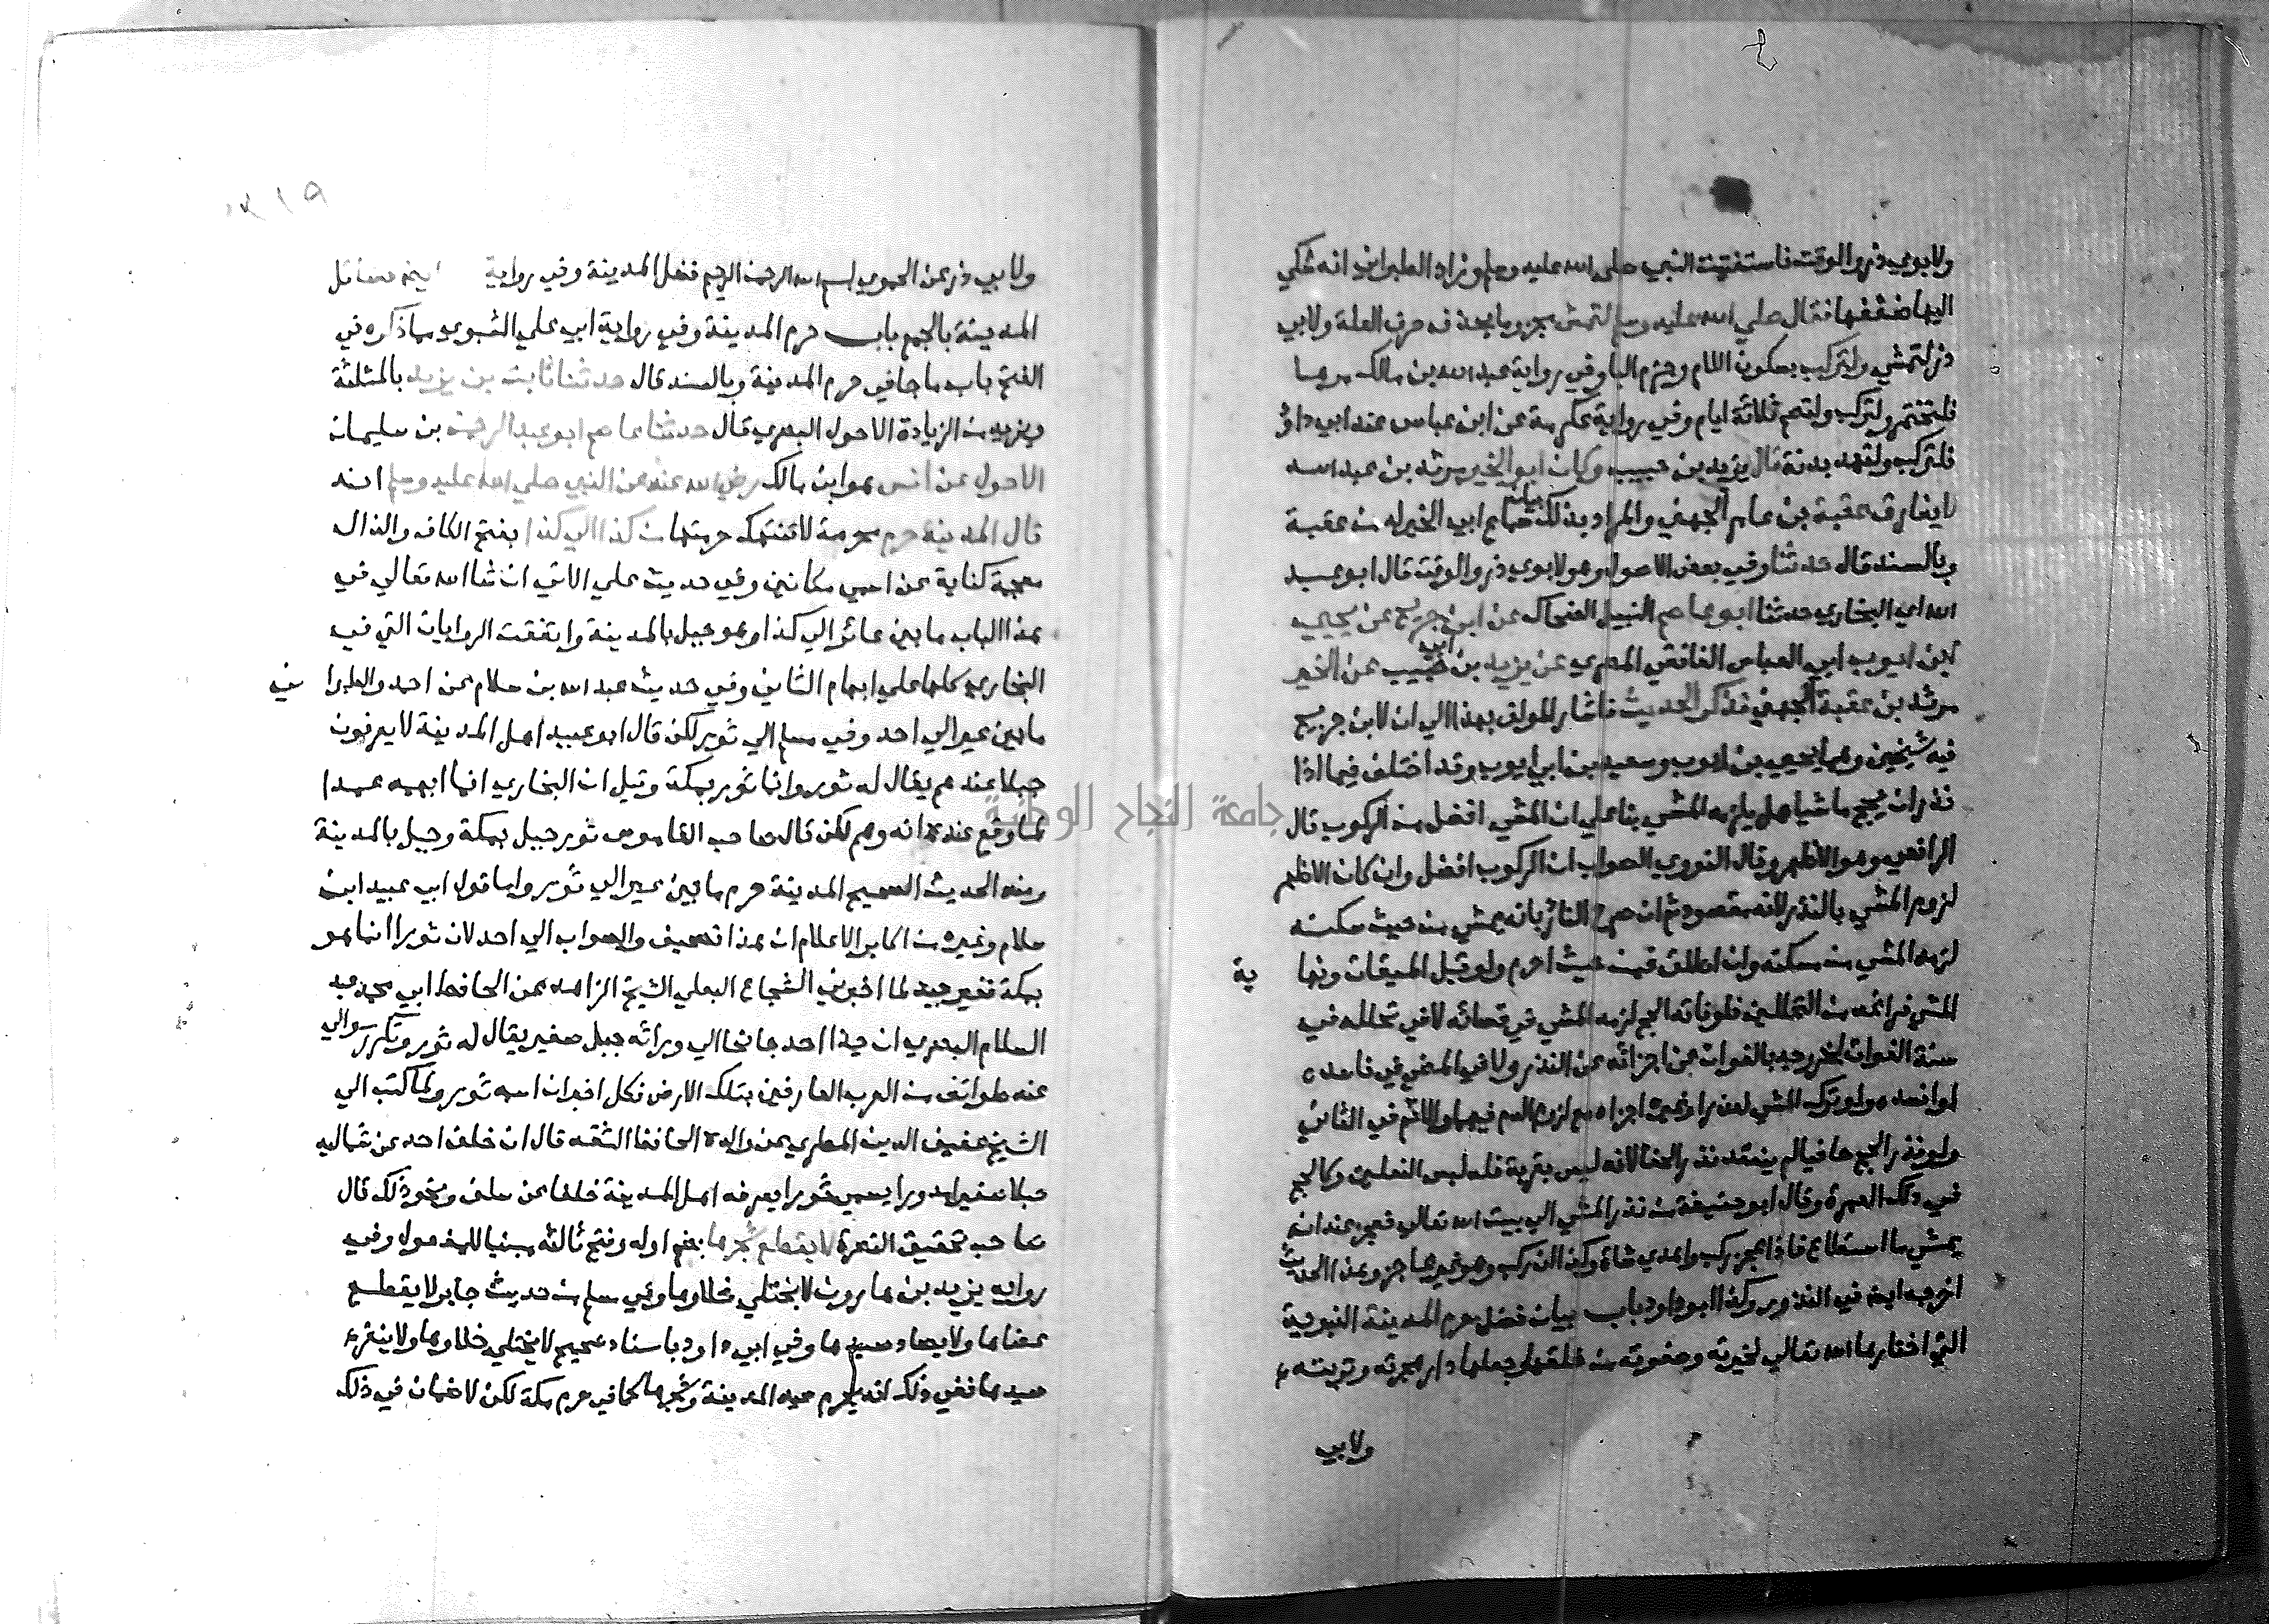 ولابوي ذر والوقت فاستفتيت النبي صلى الله عليه وسلم وزاد الطبراني انه شكي
اليها ضعفها فقال صلي الله عليه وسلم لتمش مجزوما بحذف حرف العلة ولابي
ذر لتمشي ولتركب بسكون اللام وجزم البا وفي رواية عبد الله بن مالك مرها
فلتختمر ولتركب ولتصم ثلاثة ايام وفي رواية عكرمة عن ابن عباس عند ابي داؤ
فلتركب ولتهد بدنة قال يزيد بن حبيب وكان ابو الخير مرثد بن عبد الله
لا يفارق عقبة بن عامر الجهني والمراد بذلك بيان سماع ابي الخير له من عقبة
وبالسند قال حدثنا وفي بعض الاصول وهو لابوي ذر والوقت قال ابو عبد
الله اي البخاري حدثنا ابو عاصم النبيل الضحاك عن ابن جريج عن يحيي
ابن ايوب ابي العباس الغافقي المصري عن يزيد بن ابي حبيب عن الخير
مرثد بن عقبة الجهني فذكر الحديث فاشار المولف بهذا الي ان لابن جريج
فيه شيخين وهما يحيي بن ايوب وسعيد بن ابي ايوب وقد اختلف فيما اذا
نذر ان يحج ماشيا هل يلزمه المشي بنا علي ان المشي افضل من الركوب قال
الرافعي وهو الاظهر وقال النووي الصواب ان الركوب افضل وان كان الاظهر
لزوم المشي بالنذر لانه مقصود ثم ان صرح الناذر بانه يمشي من حيث سكنه
لزمه المشي من مسكنه وان اطلق فمن حيث احرم ولو قبل الميقات ونها ية
المشي فراغه من التحللين فلو فاته الحج لزمه المشي في قضائه لا في تحلله في
سنة الفوات لخروجه بالفوات عن اجزائه عن النذر ولا في المضي في فاسده
لو افسده ولو ترك المشي لعذر او غيره اجزاه مع لزوم الدم فيهما والاثم في الثاني
ولو نذر الحج حافيا لم ينعقد نذر الحفا لانه ليس بقربة فله لبس النعلين وكالحج
في ذلك العمرة وقال ابو حنيفة من نذر المشي الي بيت الله تعالي فعجز عنه انه
يمشي ما استطاع فاذا عجز ركب واهدي شاة وكذا ان ركب وهو غير عاجز وهذا الحديث
اخرجه ايضا في النذور وكذا ابو داود باب بيان فضل حرم المدينة النبوية
التي اختارها الله تعالي لخيرته وصفوته من خلقه وجعلها دار هجرته وتربته
ولابي
ولابي ذر عن الحموي بسم الله الرحمن الرحيم فضل المدينة وفي رواية فضائل
المدينة بالجمع باب حرم المدينة وفي رواية ابي علي الشبوي مما ذكره في
الفتح باب ما جا في حرم المدينة وبالسند قال حدثنا ثابت بن يزيد بالمثلثة
ويزيد من الزيادة الاحول البصري قال حدثنا عاصم ابو عبد الرحمن بن سليمان
الاحول عن انس هو ابن مالك رضي الله عنه عن النبي صلي الله عليه وسلم انه
قال المدينة حرم محرمة لا تنتهك حرمتها من كذا الي كذا بفتح الكاف والذال
معجمة كناية عن اسمي مكانين وفي حديث علي الاتي ان شا الله تعالي في
هذا الباب ما بين عائر الي كذا وهو جبل بالمدينة واتفقت الروايات التي في
البخاري كلها علي ابهام الثاني وفي حديث عبد الله بن سلام عن احمد والطبرا ني
ما بين عير الي احد وفي مسلم الي ثور لكن قال ابو عبيد اهل المدينة لا يعرفون
جبلا عندهم يقال له ثور وانما ثور بمكة وقيل ان البخاري انما ابهمه عمدا
لما وقع عنده انه وهم لكن قال صاحب القاموس ثور جبل بمكة وجبل بالمدينة
ومنه الحديث الصحيح المدينة حرم ما بين عير الي ثور واما قول ابي عبيد ابن
سلام وغيره من اكابر الاعلام ان هذا تصحيف والصواب الي احد لان ثورا انما هو
بمكة فغير جيد لما اخبرني الشجاع البعلي الشيخ الزاهد عن الحافظ ابي محمد عبد
السلام البصري ان حذا احد جانحا الي ورائه جبل صغير يقال له ثور وتكرر سوالي
عنه طوائف من العرب العارفين بتلك الارض فكل اخبر ان اسمه ثور ولما كتب الي
الشيخ عفيف الدين المطري عن والده الحافظ الثقة قال ان خلف احد عن شماليه
جبلا صغيرا مدورا يسمي ثورا يعرفه اهل المدينة خلفا عن سلف ونحو ذلك قال
صاحب تحقيق النصرة لا يقطع شجرها بضم اوله وفتح ثالثه مبنيا للمفعول وفي
رواية يزيد بن هارون لا يختلي خلاوها وفي مسلم من حديث جابر لا يقطع
عضاها ولا يصاد صيدها وفي ابي داود باسناد صحيح لا يختلي خلاوها ولا ينفر
صيدها ففي ذلك انه يحرم صيد المدينة وشجرها كما في حرم مكة لكن لا ضمان في ذلك
جامعة النجاح الوطنية